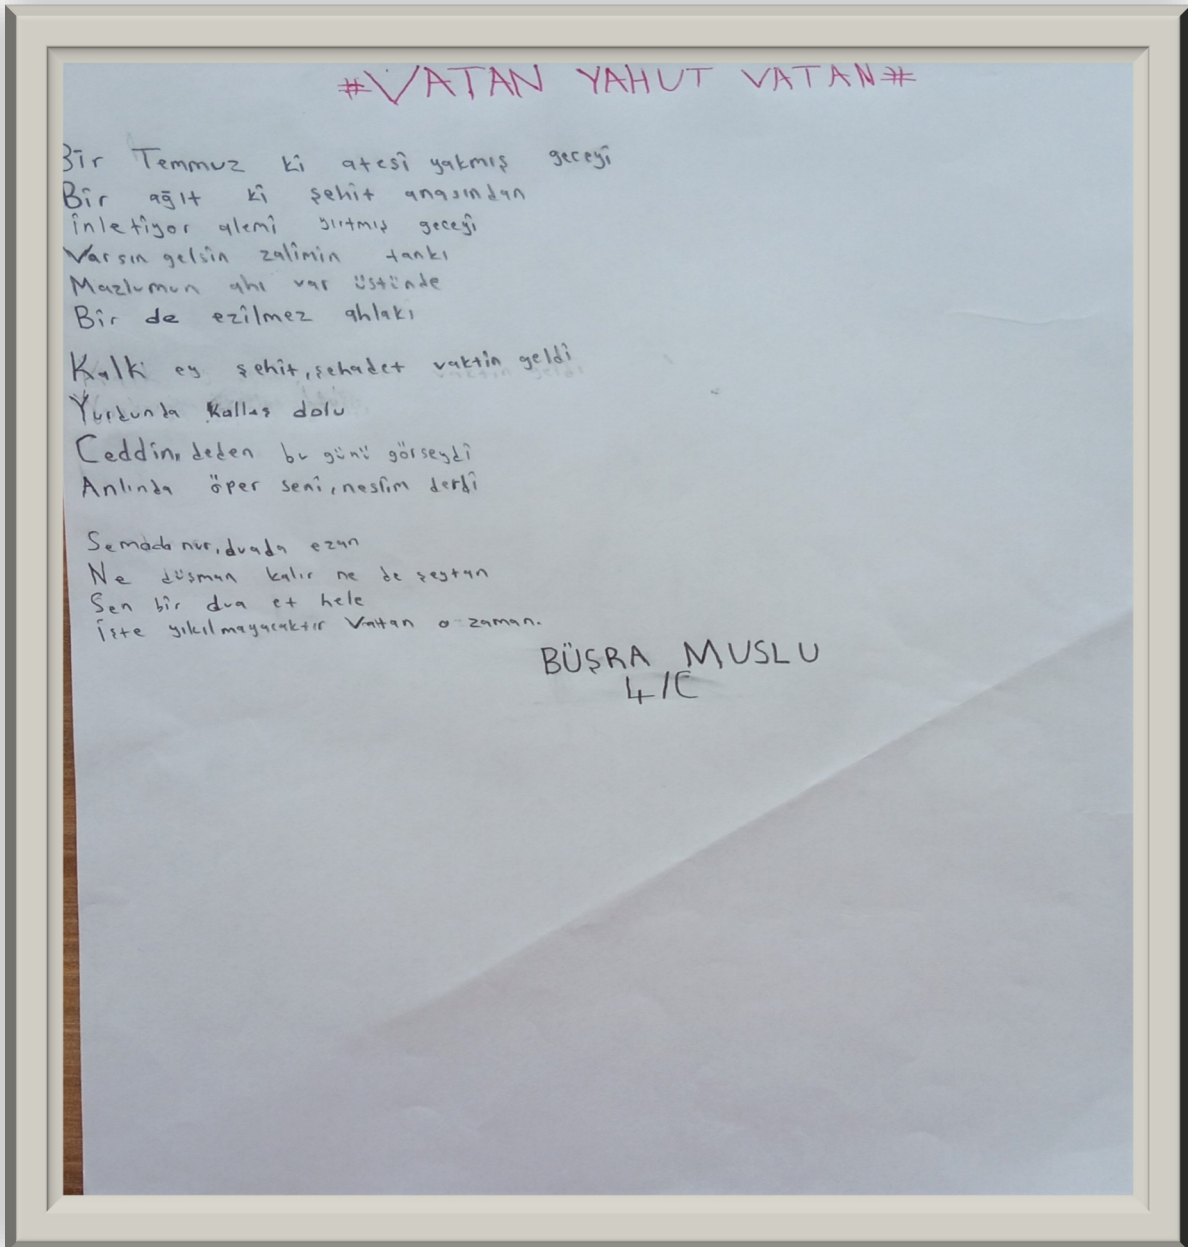 #VATAN YAHUT VATAN#
Bir Temmuz ki atesi yakmış geceyi
Bir ağıt ki şehit anasından
inletiyor alemi yırtmış geceyi
Varsın gelsin zalimin tankı
Mazlumun ahı var üstünde
Bir de ezilmez ahlakı
Kalk ey şehit, şehadet vaktin geldi
Yurdunda Kalleş dolu
Ceddin, deden bu günü görseydi
Anlında öper seni, neslim derdi
Semada nur, duada ezan
Ne düşman kalır ne de şeytan
Sen bir dua et hele
işte yıkılmayacaktır Vatan o zaman.
BÜŞRA MUSLU
4/C